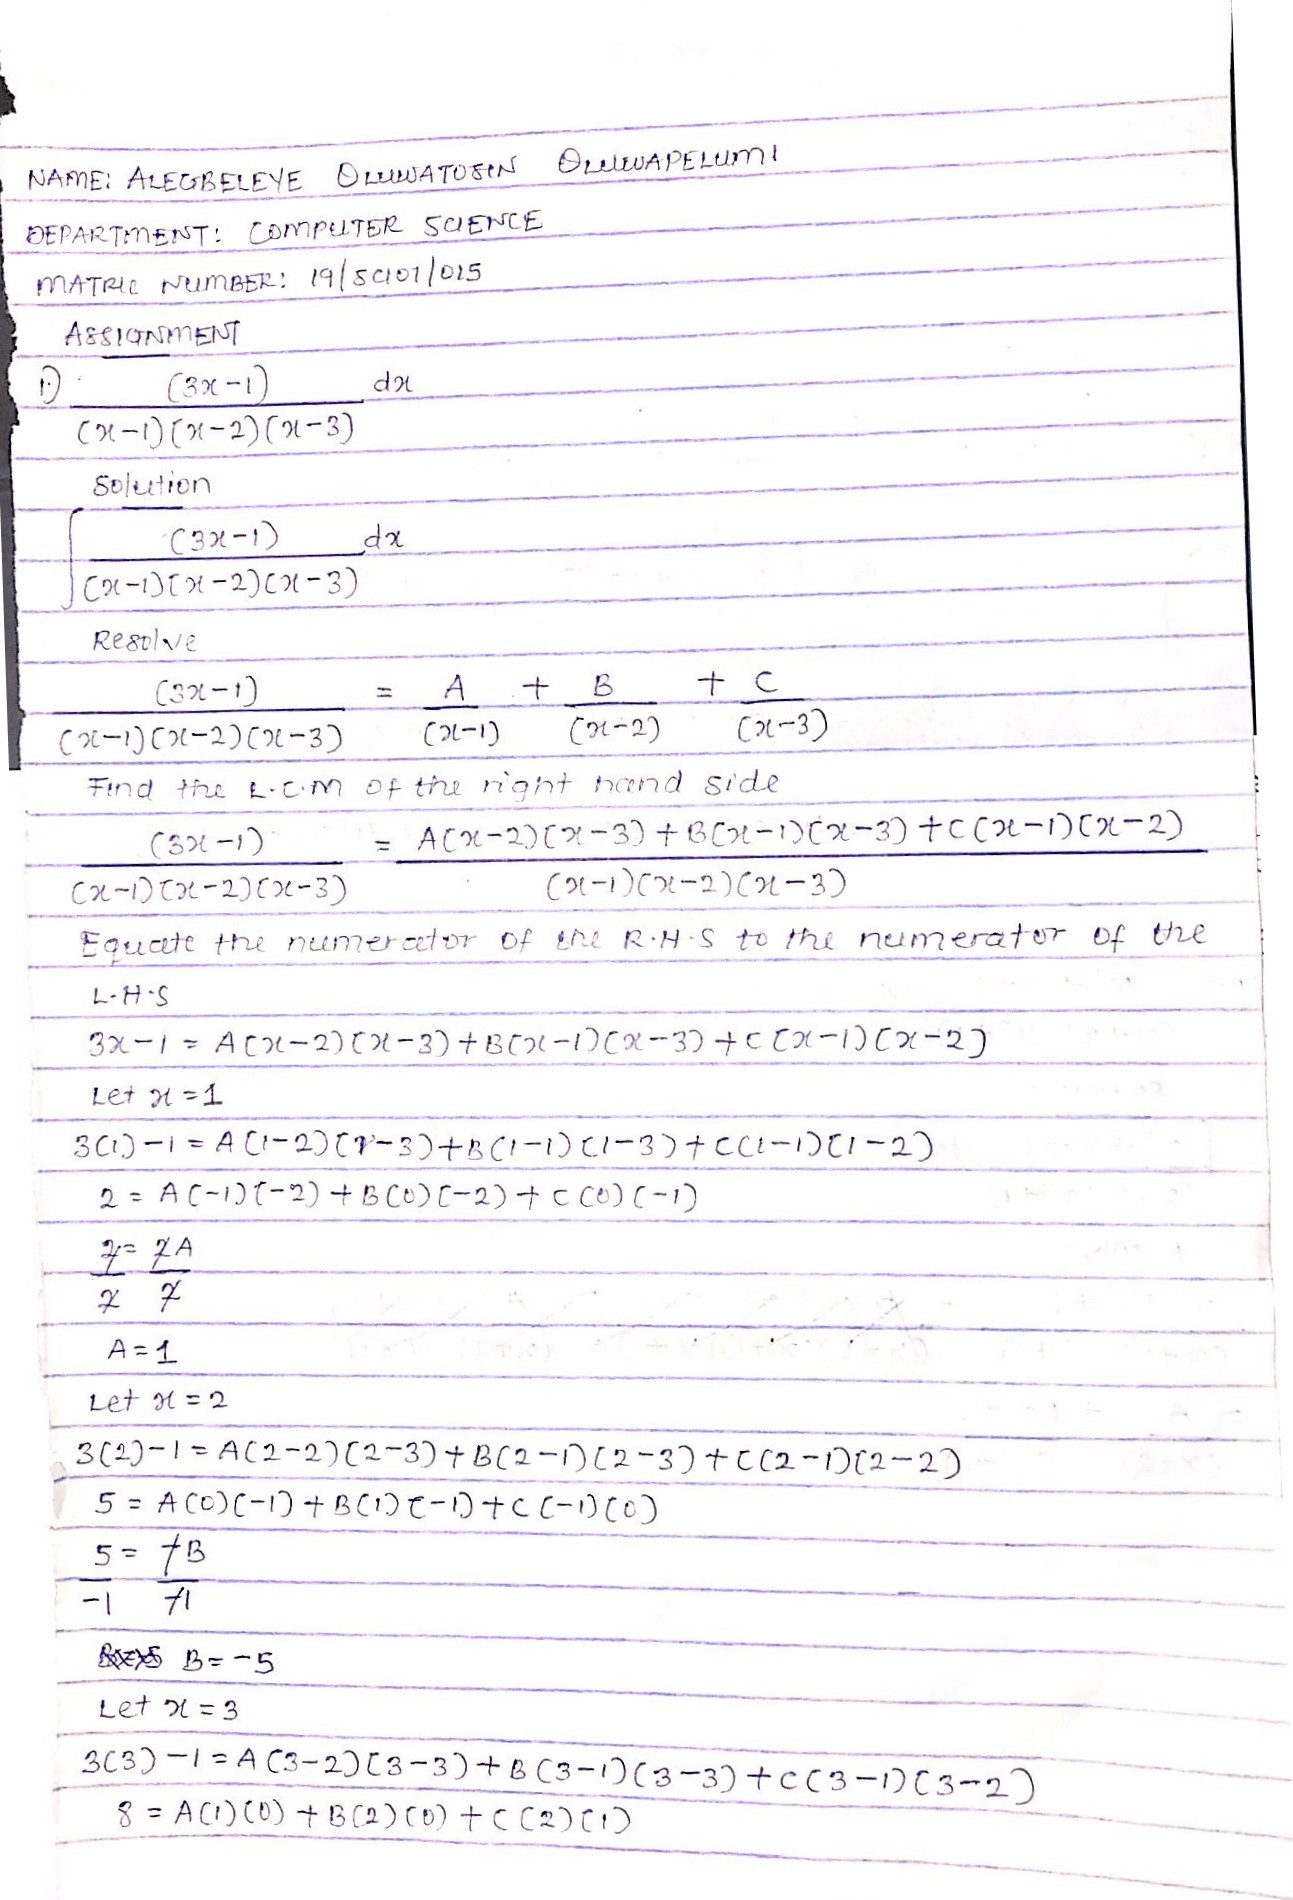 NAME: ALEGBELEYE OLUWATOSIN OLUWAPELUMI
DEPARTMENT: COMPUTER SCIENCE
MATRIC NUMBER: 19/SCI01/015
ASSIGNMENT
1.) (3x-1) dx
(x-1)(x-2)(x-3)
Solution
∫ (3x-1) dx
(x-1)(x-2)(x-3)
Resolve
(3x-1) = A + B + C
(x-1)(x-2)(x-3) (x-1) (x-2) (x-3)
Find the L.C.M of the right hand side
(3x-1) = A(x-2)(x-3)+B(x-1)(x-3)+C(x-1)(x-2)
(x-1)(x-2)(x-3) (x-1)(x-2)(x-3)
Equate the numerator of the R.H.S to the numerator of the
L.H.S
3x-1 = A(x-2)(x-3)+B(x-1)(x-3)+C(x-1)(x-2)
Let x=1
3(1)-1 = A(1-2)(1-3)+B(1-1)(1-3)+C(1-1)(1-2)
2 = A(-1)(-2)+B(0)(-2)+C(0)(-1)
2 = 2A
2 2
A=1
Let x=2
3(2)-1 = A(2-2)(2-3)+B(2-1)(2-3)+C(2-1)(2-2)
5 = A(0)(-1)+B(1)(-1)+C(-1)(0)
5 = -B
-1 -1
B=-5
Let x=3
3(3)-1 = A(3-2)(3-3)+B(3-1)(3-3)+C(3-1)(3-2)
8 = A(1)(0)+B(2)(0)+C(2)(1)